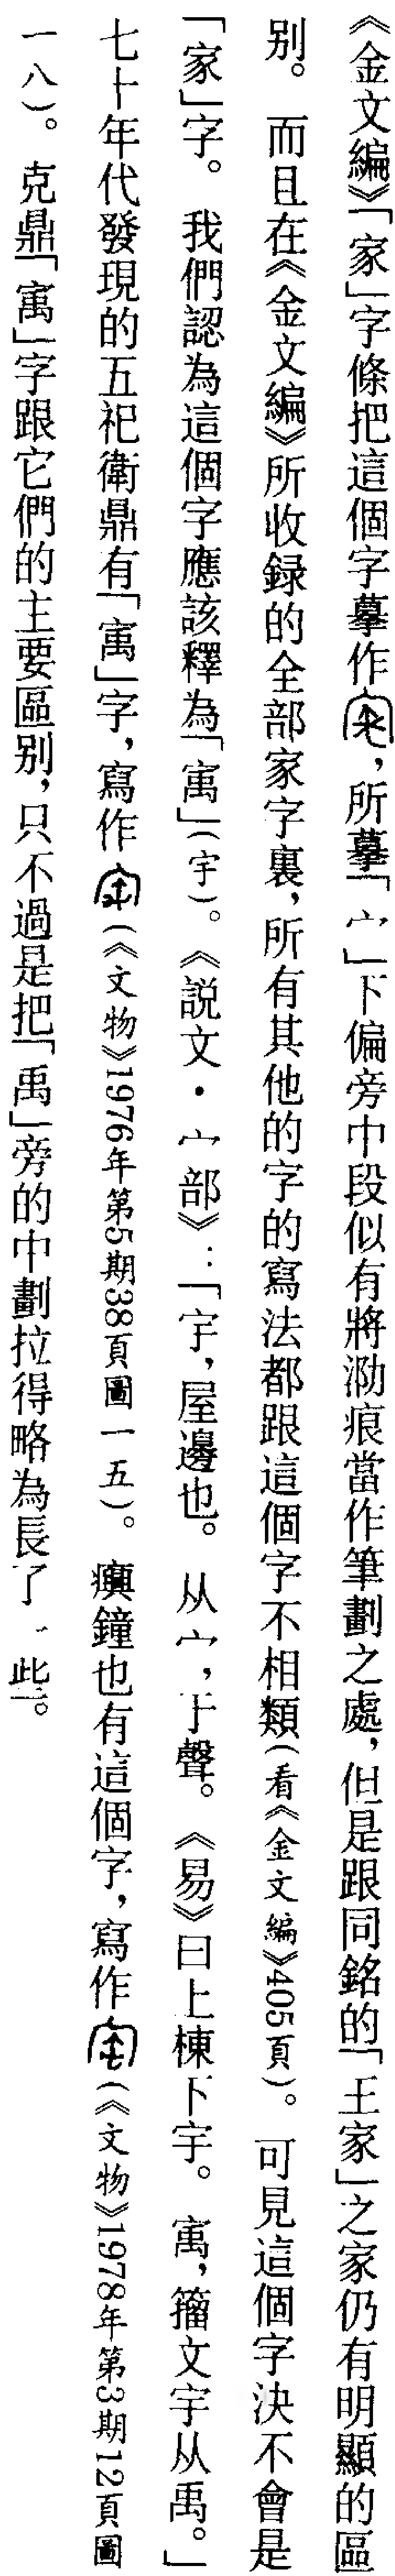 《金文編》「家」字條把這個字摹作，所摹「宀」下偏旁中段似有將泐痕當作筆劃之處，但是跟同銘的「王家」之家仍有明顯的區
別。而且在《金文編》所收録的全部家字裏，所有其他的字的寫法都跟這個字不相類（看《金文編》405頁）。可見這個字決不會是
「家」字。我們認為這個字應該釋為「㝢」（宇）。《説文·宀部》：「宇，屋邊也。从宀，于聲。《易》曰上棟下宇。㝢，籀文宇从禹。」
七十年代發現的五祀衛鼎有「㝢」字，寫作（《文物》1976年第5期38頁圖一五）。㾓鐘也有這個字，寫作（《文物》1978年第3期12頁圖
一八）。克鼎「㝢」字跟它們的主要區别，只不過是把「禹」旁的中劃拉得略為長了一些。